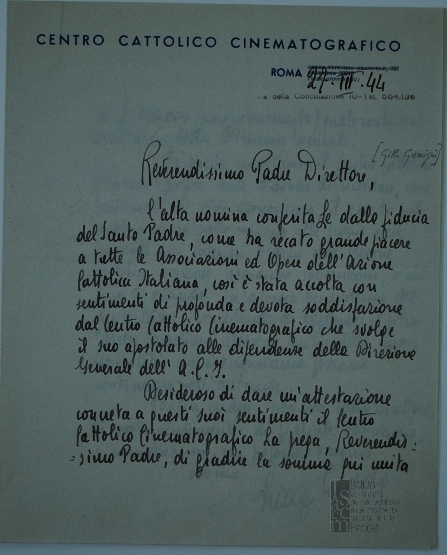 CENTRO CATTOLICO CINEMATOGRAFICO
ROMA
27-III-44
Via della Conciliazione 10-Tel. 564.138
Reverendissimo Padre Direttore,
l'alta nomina conferitaLe dalla fiducia
del Santo Padre, come ha recato grande piacere
a tutte le Associazioni ed Opere dell'Azione
Cattolica Italiana, così è stata accolta con
sentimenti di profonda e devota soddisfazione
dal Centro Cattolico Cinematografico che svolge
il suo apostolato alle dipendenze della Direzione
Generale dell'A.C.I.
Desideroso di dare un'attestazione
concreta a questi suoi sentimenti il Centro
Cattolico Cinematografico La prega, Reverendis=
=simo Padre, di gradire la somma qui unita